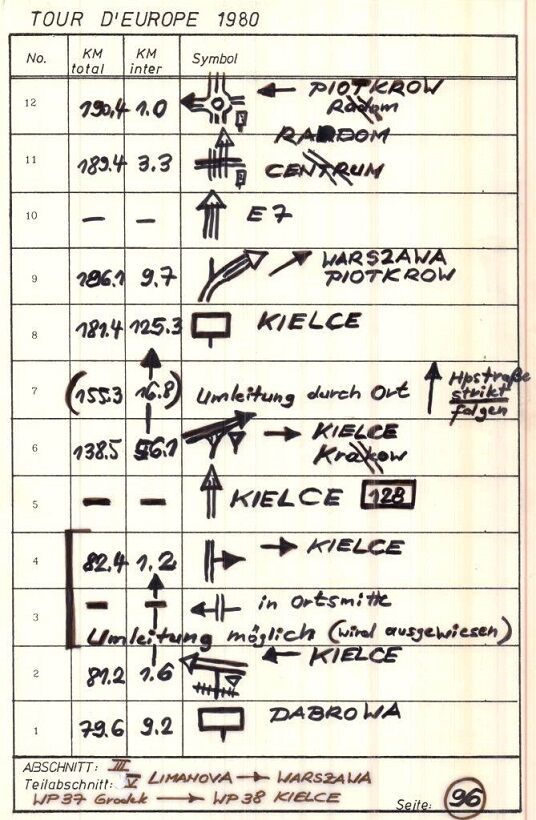 TOUR D'EUROPE 1980
No. KM total KM inter Symbol
12 190.4 1.0 ← PIOTKROW
Radom
RADOM
11 189.4 3.3 CENTRUM
10 — — E7
9 186.1 9.7 WARSZAWA
PIOTKROW
8 181.4 125.3 KIELCE
7 (155.3 16.8) Umleitung durch Ort ↑ Hpstraße
strikt
folgen
6 138.5 56.1 → KIELCE
Krakow
5 — — KIELCE 128
4 82.4 1.2 → KIELCE
3 — — in Ortsmitte
Umleitung möglich (wird ausgewiesen)
2 81.2 1.6 ← KIELCE
1 79.6 9.2 DABROWA
ABSCHNITT: III
Teilabschnitt: V LIMANOVA → WARSZAWA
WP37 Grodek → WP38 KIELCE
Seite: 96